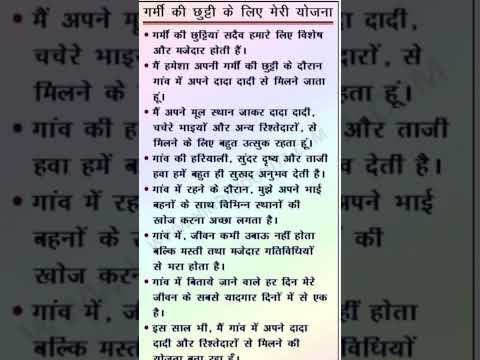 गर्मी की छुट्टी के लिए मेरी योजना
• गर्मी की छुट्टियां सदैव हमारे लिए विशेष
और मजेदार होती हैं।
• मैं हमेशा अपनी गर्मी की छुट्टी के दौरान
गांव में अपने दादा दादी से मिलने जाता
हूं।
• मैं अपने मूल स्थान जाकर दादा दादी,
चचेरे भाइयों और अन्य रिश्तेदारों, से
मिलने के लिए बहुत उत्सुक रहता हूं।
• गांव की हरियाली, सुंदर दृष्य और ताजी
हवा हमें बहुत ही सुखद अनुभव देती है।
• गांव में रहने के दौरान, मुझे अपने भाई
बहनों के साथ विभिन्न स्थानों की
खोज करना अच्छा लगता है।
• गांव में, जीवन कभी उबाऊ नहीं होता
बल्कि मस्ती तथा मजेदार गतिविधियों
से भरा होता है।
• गांव में बिताये जाने वाले हर दिन मेरे
जीवन के सबसे यादगार दिनों में से एक
है।
• इस साल भी, मैं गांव में अपने दादा
दादी और रिश्तेदारों से मिलने की
योजना बना रहा हूँ।